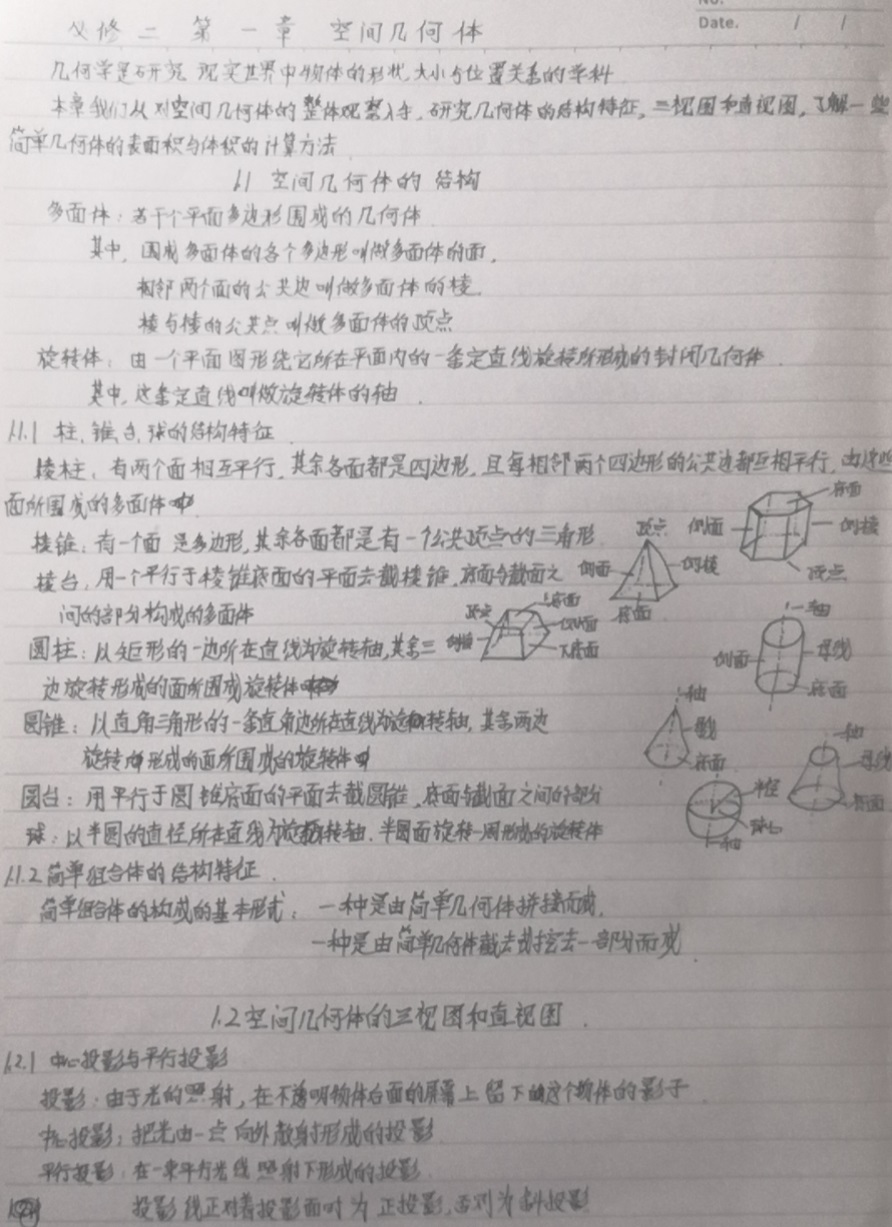 No.
Date. / /
必修二 第一章 空间几何体
几何学是研究现实世界中物体的形状、大小与位置关系的学科
本章我们从对空间几何体的整体观察入手，研究几何体的结构特征，三视图和直视图，了解一些
简单几何体的表面积与体积的计算方法
1.1 空间几何体的结构
多面体：若干个平面多边形围成的几何体
其中，围成多面体的各个多边形叫做多面体的面，
相邻两个面的公共边叫做多面体的棱，
棱与棱的公共点叫做多面体的顶点
旋转体：由一个平面图形绕它所在平面内的一条定直线旋转所形成的封闭几何体
其中，这条定直线叫做旋转体的轴.
1.1.1 柱、锥、台、球的结构特征
棱柱：有两个面相互平行，其余各面都是四边形，且每相邻两个四边形的公共边都互相平行，由这些
面所围成的多面体
底面
侧面 侧棱
顶点
棱锥：有一个面是多边形，其余各面都是有一个公共顶点的三角形
顶点
侧面 侧棱
底面
棱台，用一个平行于棱锥底面的平面去截棱锥，底面与截面之
间的部分构成的多面体
顶点 上底面
侧棱 侧面
下底面
圆柱：以矩形的一边所在直线为旋转轴，其余三
边旋转形成的面所围成旋转体
轴
侧面 母线
底面
圆锥：以直角三角形的一条直角边所在直线为旋转轴，其余两边
旋转形成的面所围成的旋转体
轴
母线
底面
圆台：用平行于圆锥底面的平面去截圆锥，底面与截面之间的部分
轴
母线
底面
球：以半圆的直径所在直线为旋转轴，半圆面旋转一周形成的旋转体
半径
球心
轴
1.1.2 简单组合体的结构特征.
简单组合体的构成的基本形式：一种是由简单几何体拼接而成，
一种是由简单几何体截去或挖去一部分而成
1.2 空间几何体的三视图和直视图.
1.2.1 中心投影与平行投影
投影：由于光的照射，在不透明物体后面的屏幕上留下的这个物体的影子
中心投影：把光由一点向外散射形成的投影
平行投影：在一束平行光线照射下形成的投影
投影线正对着投影面时为正投影，否则为斜投影